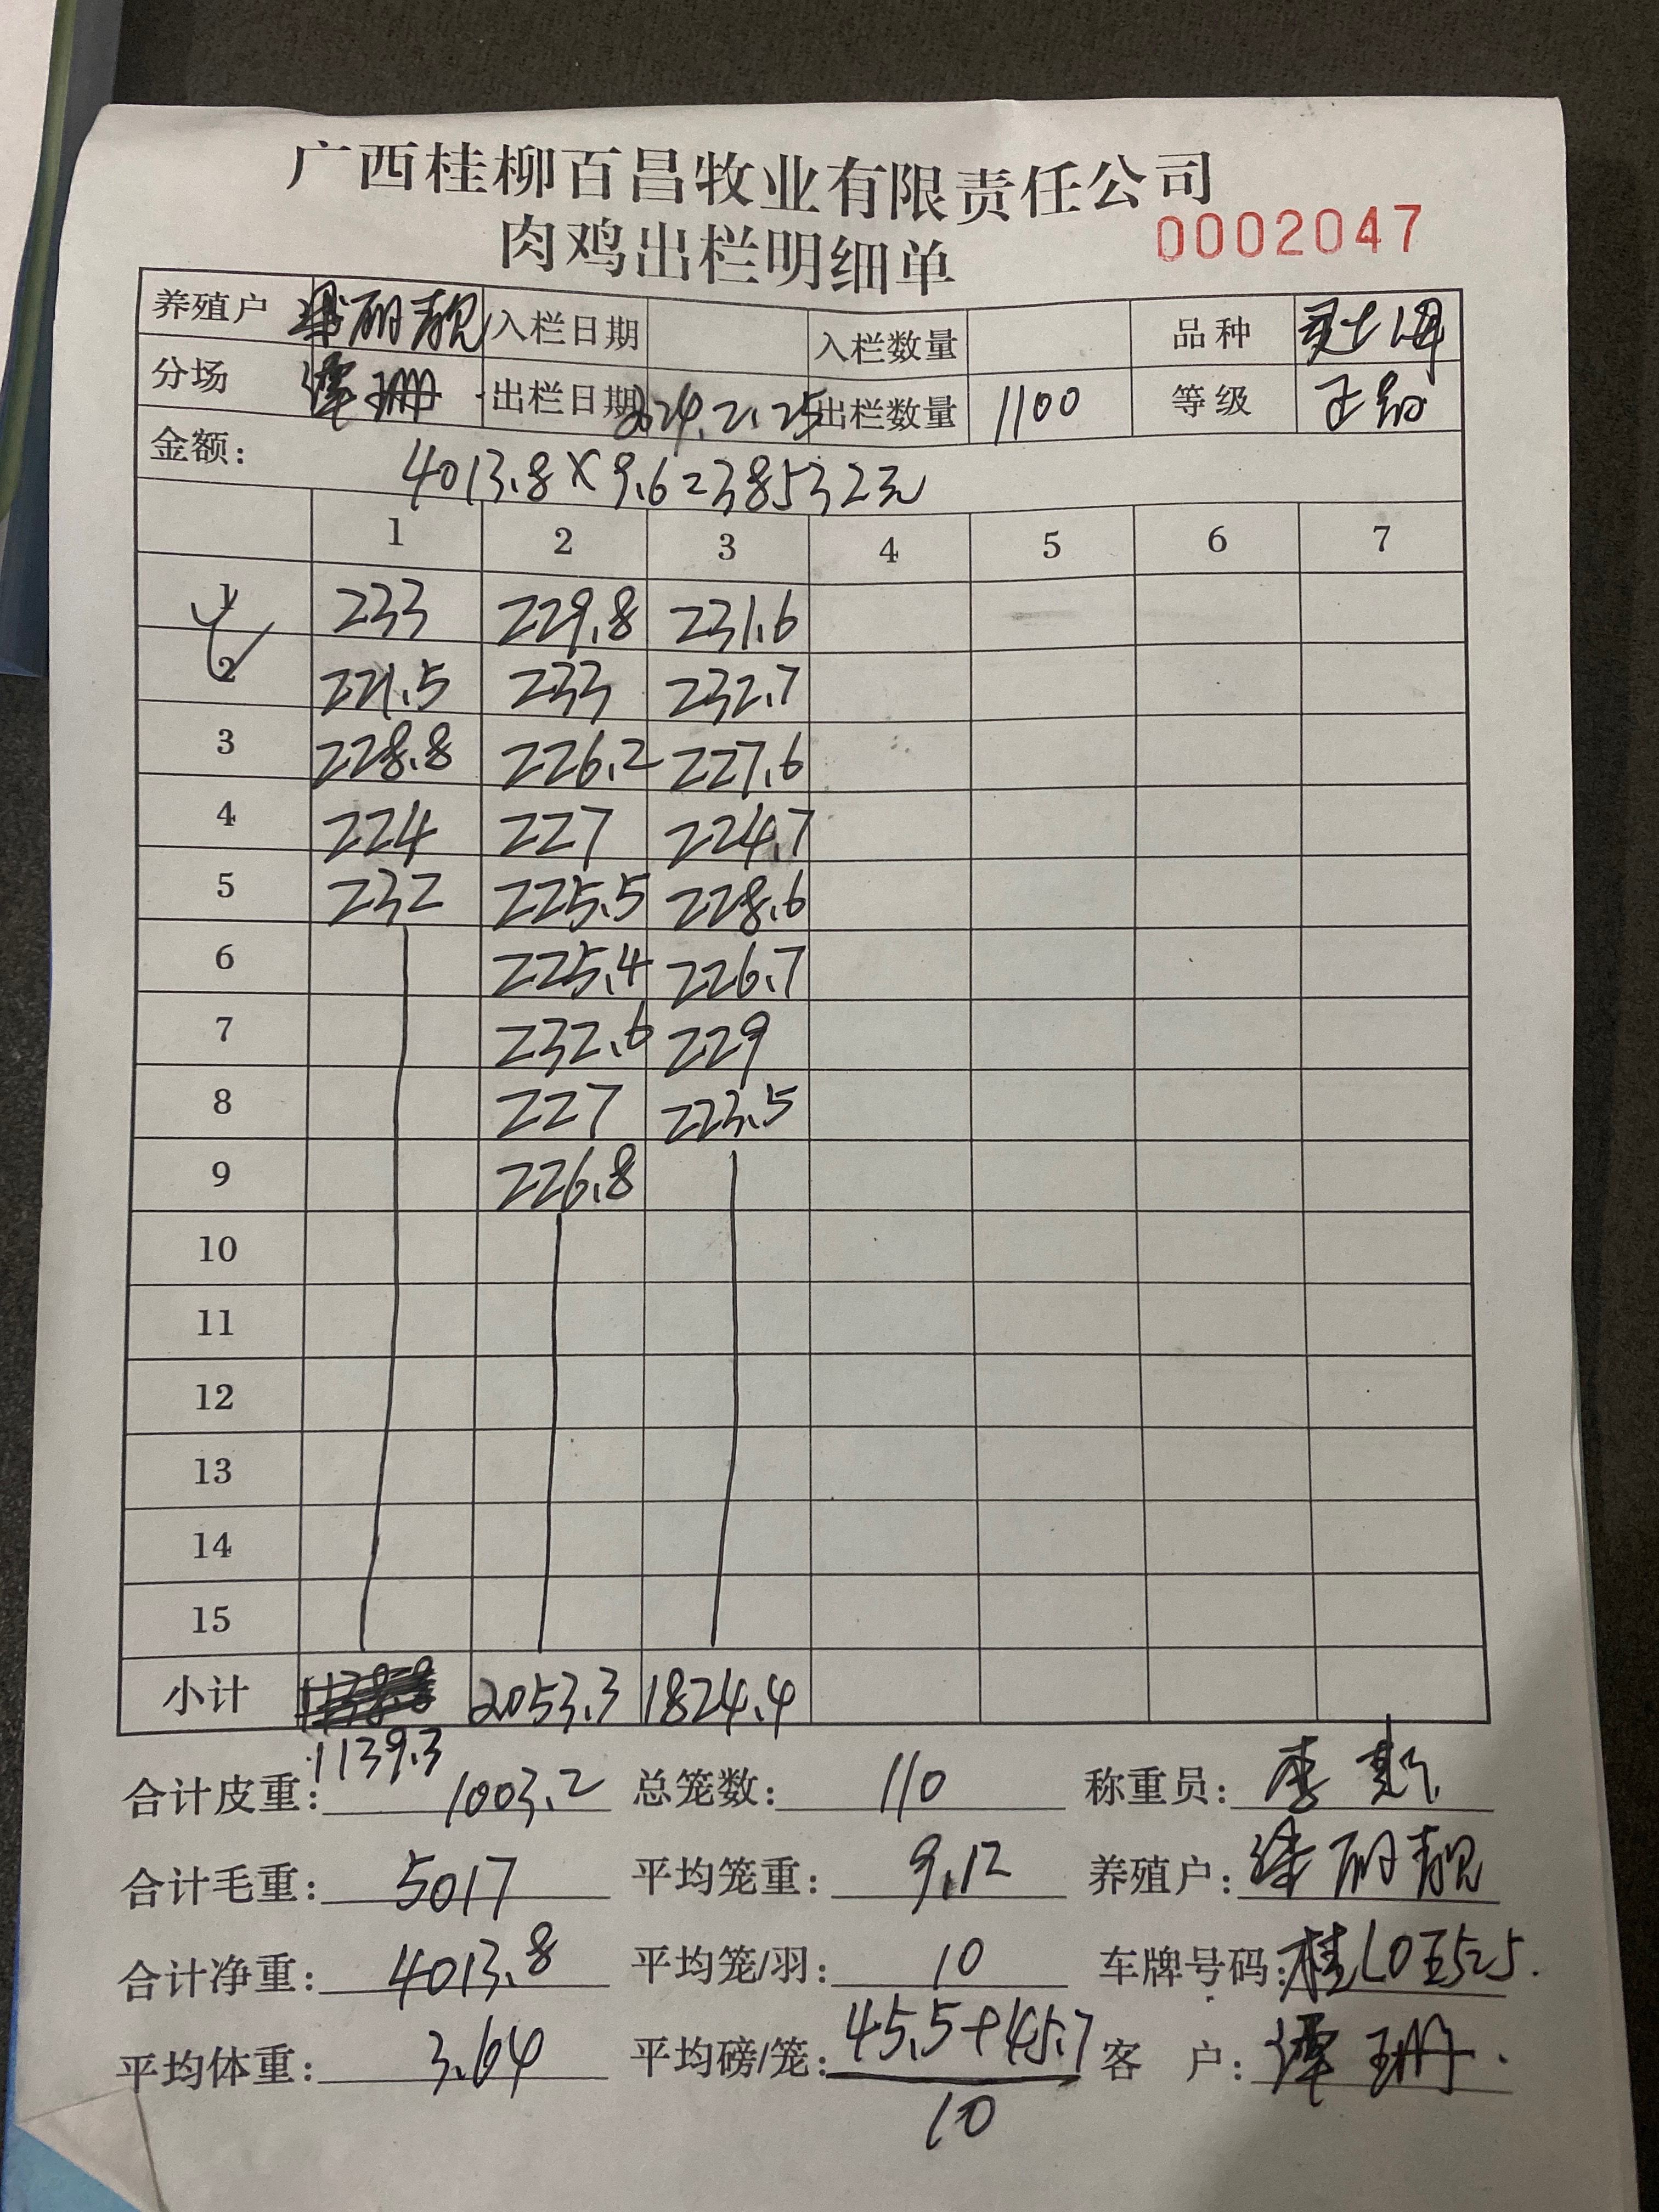 广西桂柳百昌牧业有限责任公司
肉鸡出栏明细单 0002047
养殖户 丽靓 入栏日期 入栏数量 品种
分场 谭珊 出栏日期 2024.2.25 出栏数量 1100 等级 正级
金额: 4013.8×9.6=38532元
1 2 3 4 5 6 7
1 233 229.8 231.6
2 221.5 233 232.7
3 228.8 226.2 227.6
4 224 227 224.7
5 232 225.5 228.6
6 225.4 226.7
7 232.6 229
8 227 223.5
9 226.8
10
11
12
13
14
15
小计 2053.3 1824.4
1139.3
合计皮重: 1003.2 总笼数: 110 称重员: 李
合计毛重: 5017 平均笼重: 9.12 养殖户: 丽靓
合计净重: 4013.8 平均笼/羽: 10 车牌号码: 桂L
平均体重: 3.64 平均磅/笼: 45.5+45.7 客 户: 谭珊
10